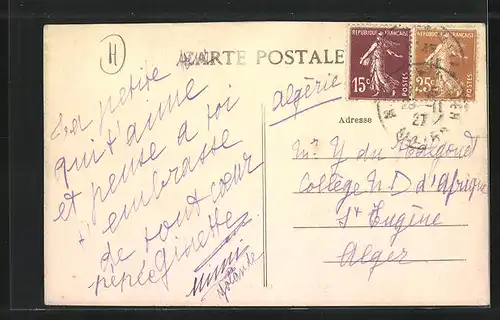 H
CARTE POSTALE
RÉPUBLIQUE FRANÇAISE
15c
POSTES
RÉPUBLIQUE FRANÇAISE
25c
POSTES
27
Algérie
Adresse
La petite
qui t'aime
et pense a toi
t'embrasse
de tout cœur
Mimi
Yolande
Mr Y du
Collège N. D d'Afrique
St Eugène
Alger